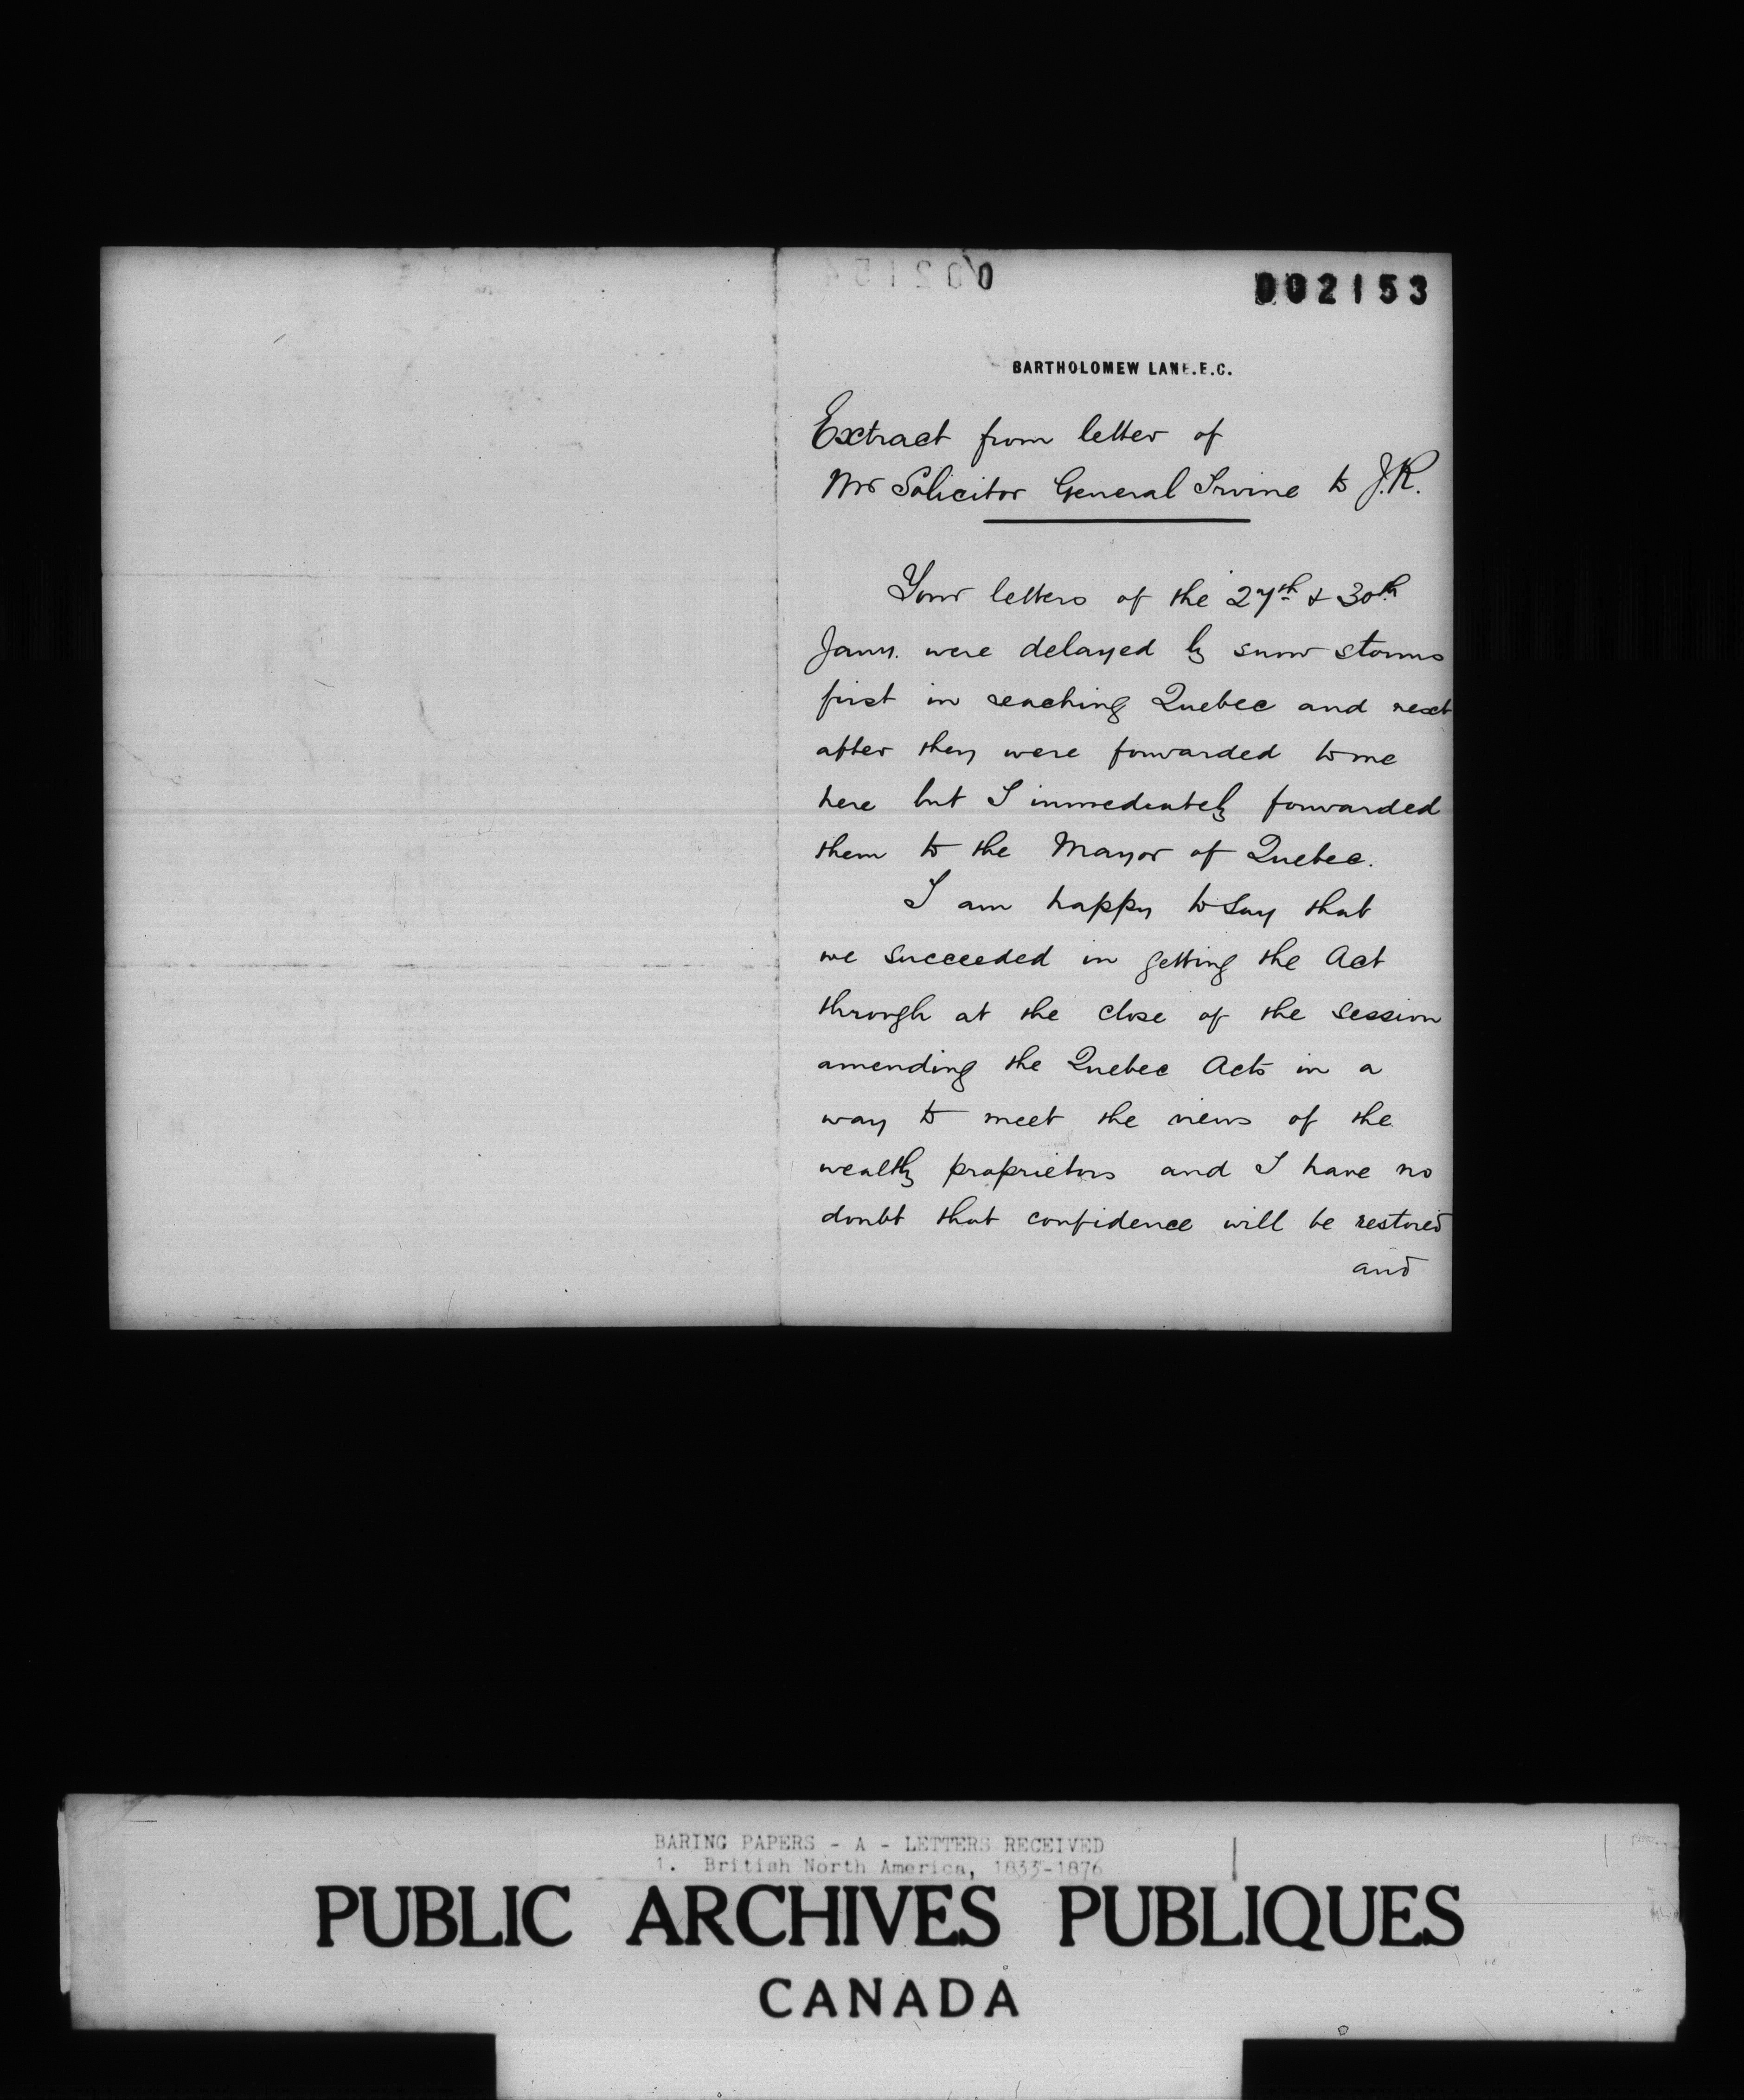 002153
BARTHOLOMEW LANE. E.C.
Extract from letter of
Mr Solicitor General Irvine to J.R.
Your letters of the 27th & 30th
Jany. were delayed by snow storms
first in reaching Quebec and next
after they were forwarded to me
here but I immediately forwarded
them to the Mayor of Quebec.
I am happy to say that
we succeeded in getting the Act
through at the close of the session
amending the Quebec Acts in a
way to meet the views of the
wealthy proprietors and I have no
doubt that confidence will be restored
and
BARING PAPERS - A - LETTERS RECEIVED
1. British North America, 1833-1876
PUBLIC ARCHIVES PUBLIQUES
CANADA